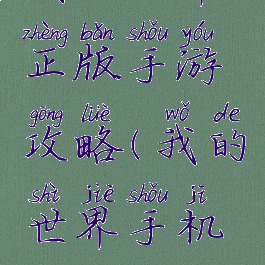 zhèng bǎn shǒu yóu
正版手游
gōng lüè ( wǒ de
攻略(我的
shì jiè shǒu jī
世界手机